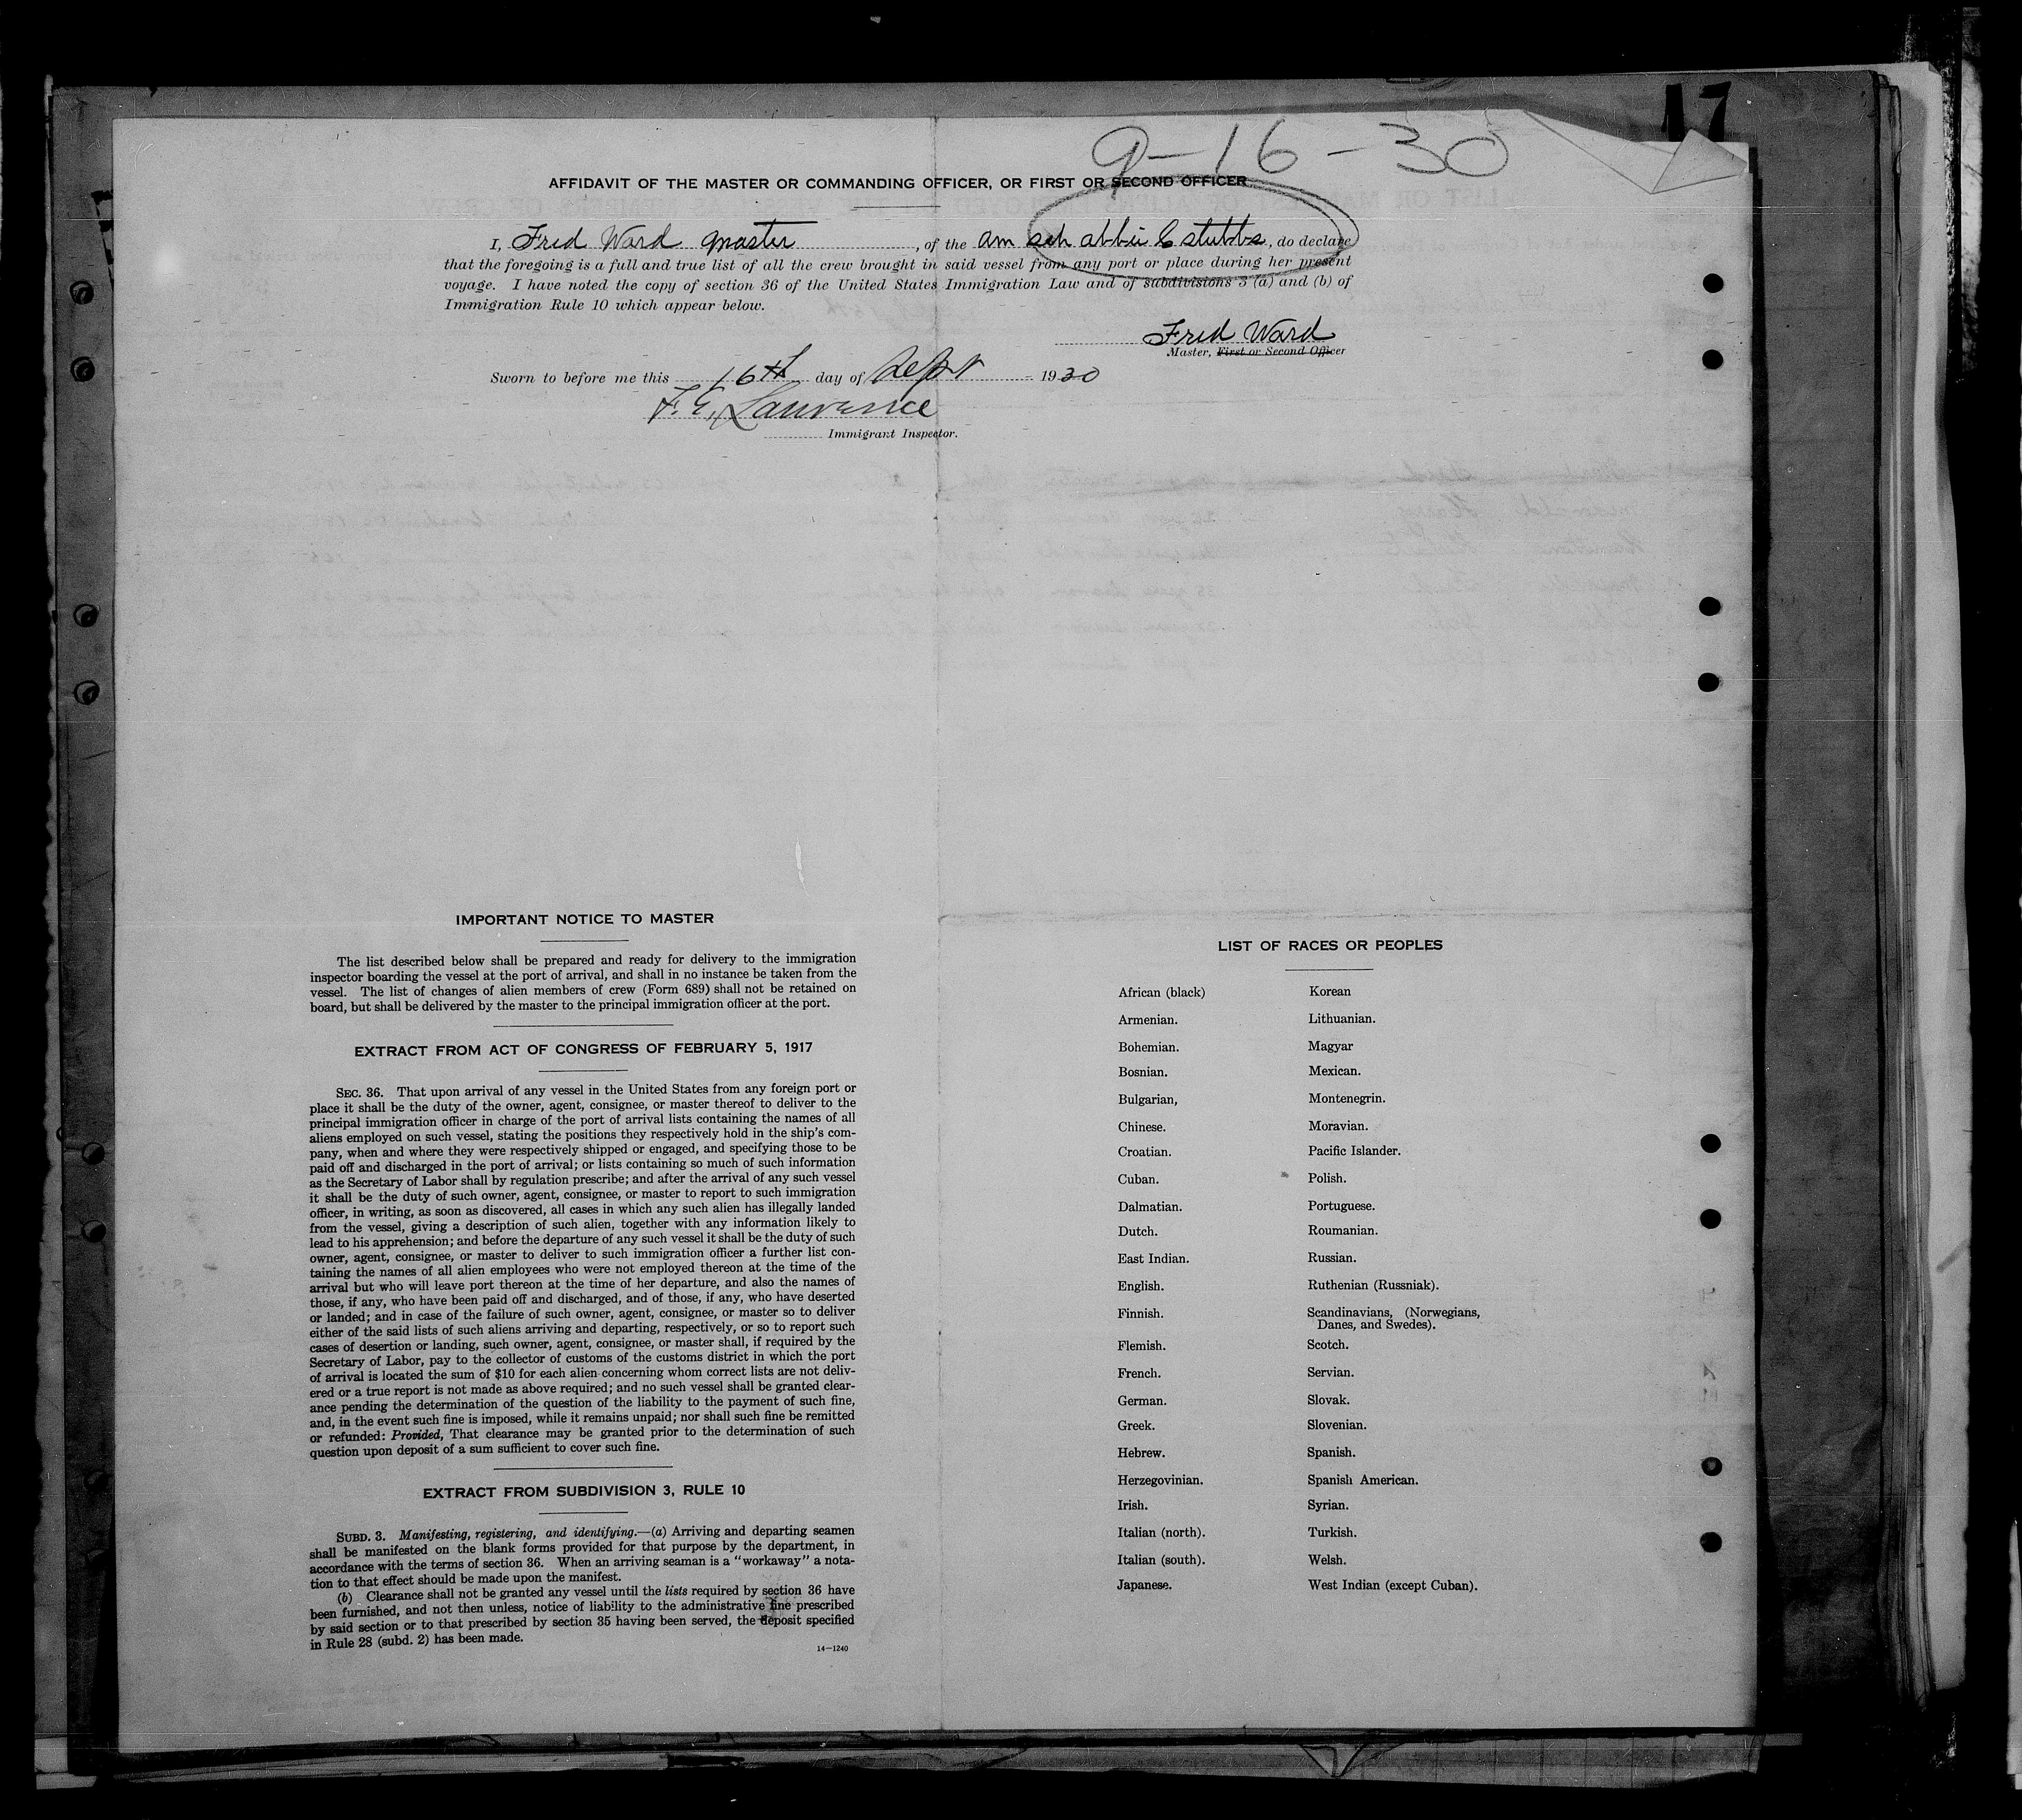 17
9-16-30
AFFIDAVIT OF THE MASTER OR COMMANDING OFFICER, OR FIRST OR SECOND OFFICER
I, Fred Ward master, of the am sch abbie C stubbs, do declare
that the foregoing is a full and true list of all the crew brought in said vessel from any port or place during her present
voyage. I have noted the copy of section 36 of the United States Immigration Law and of subdivisions 3 (a) and (b) of
Immigration Rule 10 which appear below.
Fred Ward
Master, First or Second Officer
Sworn to before me this 16th day of Sept 1930
F. E. Lawrence
Immigrant Inspector.
IMPORTANT NOTICE TO MASTER
The list described below shall be prepared and ready for delivery to the immigration
inspector boarding the vessel at the port of arrival, and shall in no instance be taken from the
vessel. The list of changes of alien members of crew (Form 689) shall not be retained on
board, but shall be delivered by the master to the principal immigration officer at the port.
EXTRACT FROM ACT OF CONGRESS OF FEBRUARY 5, 1917
SEC. 36. That upon arrival of any vessel in the United States from any foreign port or
place it shall be the duty of the owner, agent, consignee, or master thereof to deliver to the
principal immigration officer in charge of the port of arrival lists containing the names of all
aliens employed on such vessel, stating the positions they respectively hold in the ship's com-
pany, when and where they were respectively shipped or engaged, and specifying those to be
paid off and discharged in the port of arrival; or lists containing so much of such information
as the Secretary of Labor shall by regulation prescribe; and after the arrival of any such vessel
it shall be the duty of such owner, agent, consignee, or master to report to such immigration
officer, in writing, as soon as discovered, all cases in which any such alien has illegally landed
from the vessel, giving a description of such alien, together with any information likely to
lead to his apprehension; and before the departure of any such vessel it shall be the duty of such
owner, agent, consignee, or master to deliver to such immigration officer a further list con-
taining the names of all alien employees who were not employed thereon at the time of the
arrival but who will leave port thereon at the time of her departure, and also the names of
those, if any, who have been paid off and discharged, and of those, if any, who have deserted
or landed; and in case of the failure of such owner, agent, consignee, or master so to deliver
either of the said lists of such aliens arriving and departing, respectively, or so to report such
cases of desertion or landing, such owner, agent, consignee, or master shall, if required by the
Secretary of Labor, pay to the collector of customs of the customs district in which the port
of arrival is located the sum of $10 for each alien concerning whom correct lists are not deliv-
ered or a true report is not made as above required; and no such vessel shall be granted clear-
ance pending the determination of the question of the liability to the payment of such fine,
and, in the event such fine is imposed, while it remains unpaid; nor shall such fine be remitted
or refunded: Provided, That clearance may be granted prior to the determination of such
question upon deposit of a sum sufficient to cover such fine.
EXTRACT FROM SUBDIVISION 3, RULE 10
SUBD. 3. Manifesting, registering, and identifying.—(a) Arriving and departing seamen
shall be manifested on the blank forms provided for that purpose by the department, in
accordance with the terms of section 36. When an arriving seaman is a "workaway" a nota-
tion to that effect should be made upon the manifest.
(b) Clearance shall not be granted any vessel until the lists required by section 36 have
been furnished, and not then unless, notice of liability to the administrative fine prescribed
by said section or to that prescribed by section 35 having been served, the deposit specified
in Rule 28 (subd. 2) has been made.
14—1240
LIST OF RACES OR PEOPLES
African (black) Korean
Armenian. Lithuanian.
Bohemian. Magyar
Bosnian. Mexican.
Bulgarian, Montenegrin.
Chinese. Moravian.
Croatian. Pacific Islander.
Cuban. Polish.
Dalmatian. Portuguese.
Dutch. Roumanian.
East Indian. Russian.
English. Ruthenian (Russniak).
Finnish. Scandinavians, (Norwegians,
Danes, and Swedes).
Flemish. Scotch.
French. Servian.
German. Slovak.
Greek. Slovenian.
Hebrew. Spanish.
Herzegovinian. Spanish American.
Irish. Syrian.
Italian (north). Turkish.
Italian (south). Welsh.
Japanese. West Indian (except Cuban).